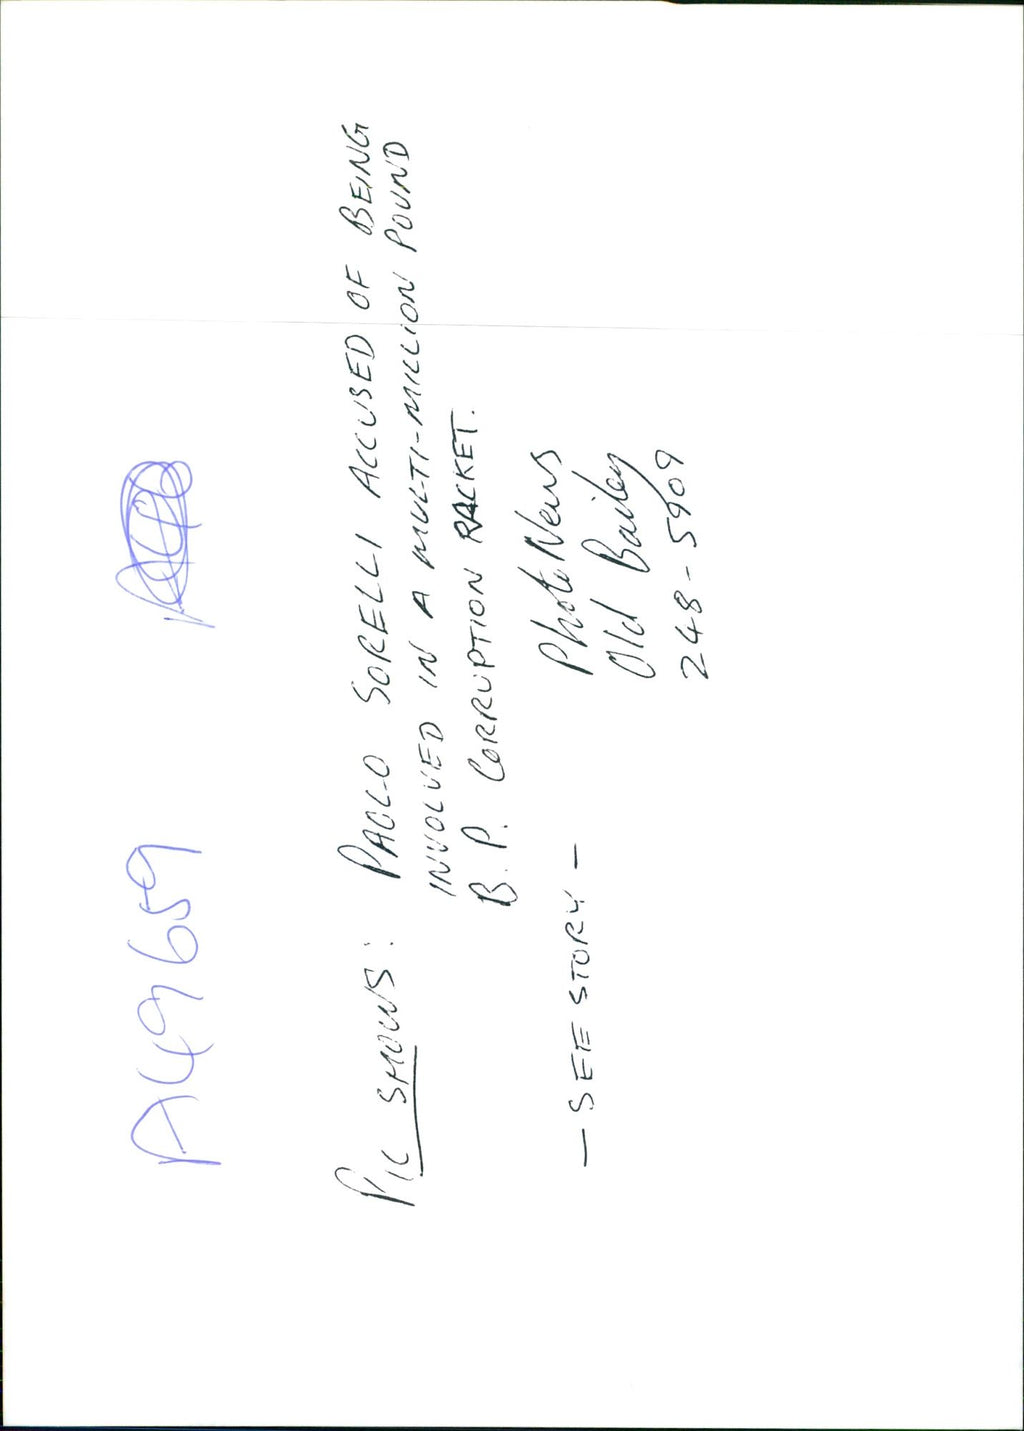 A49659
PIC SHOWS: PAOLO SORELLI ACCUSED OF BEING
INVOLVED IN A MULTI-MILLION POUND
B.P. CORRUPTION RACKET.
- SEE STORY -
Photo News
Old Bailey
248-5909